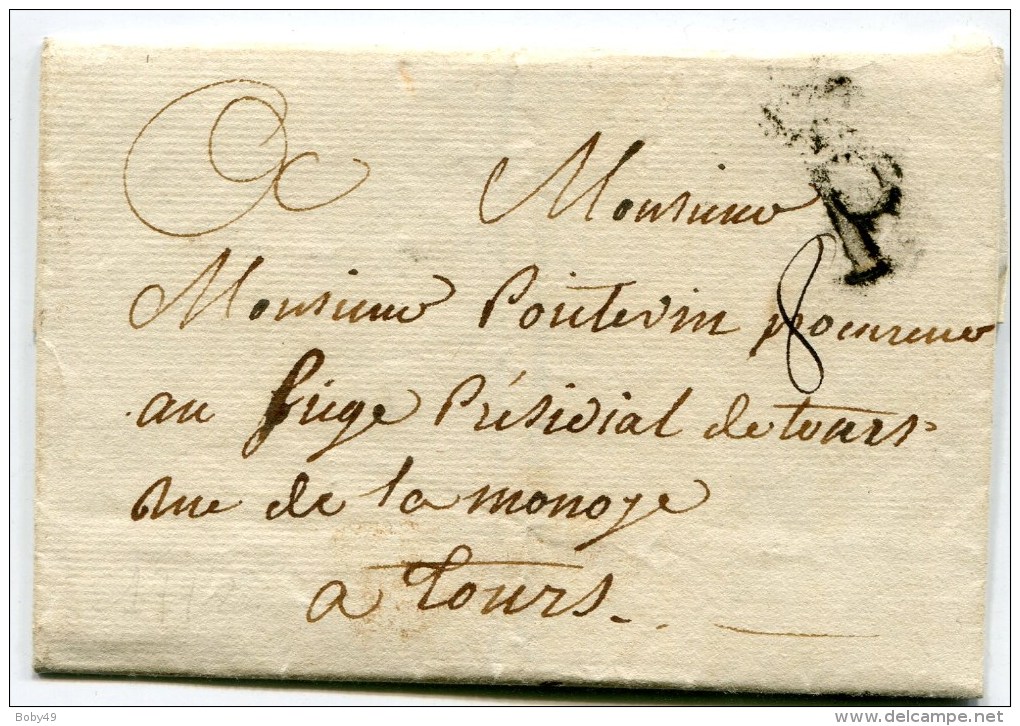 A Monsieur
Monsieur Poitevin procureur
8
au siege Présidial de tours
rue de la monoye
a tours
Boby49
delcampe.net